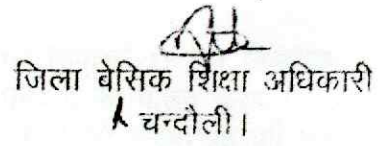 जिला बेसिक शिक्षा अधिकारी
चन्दौली।